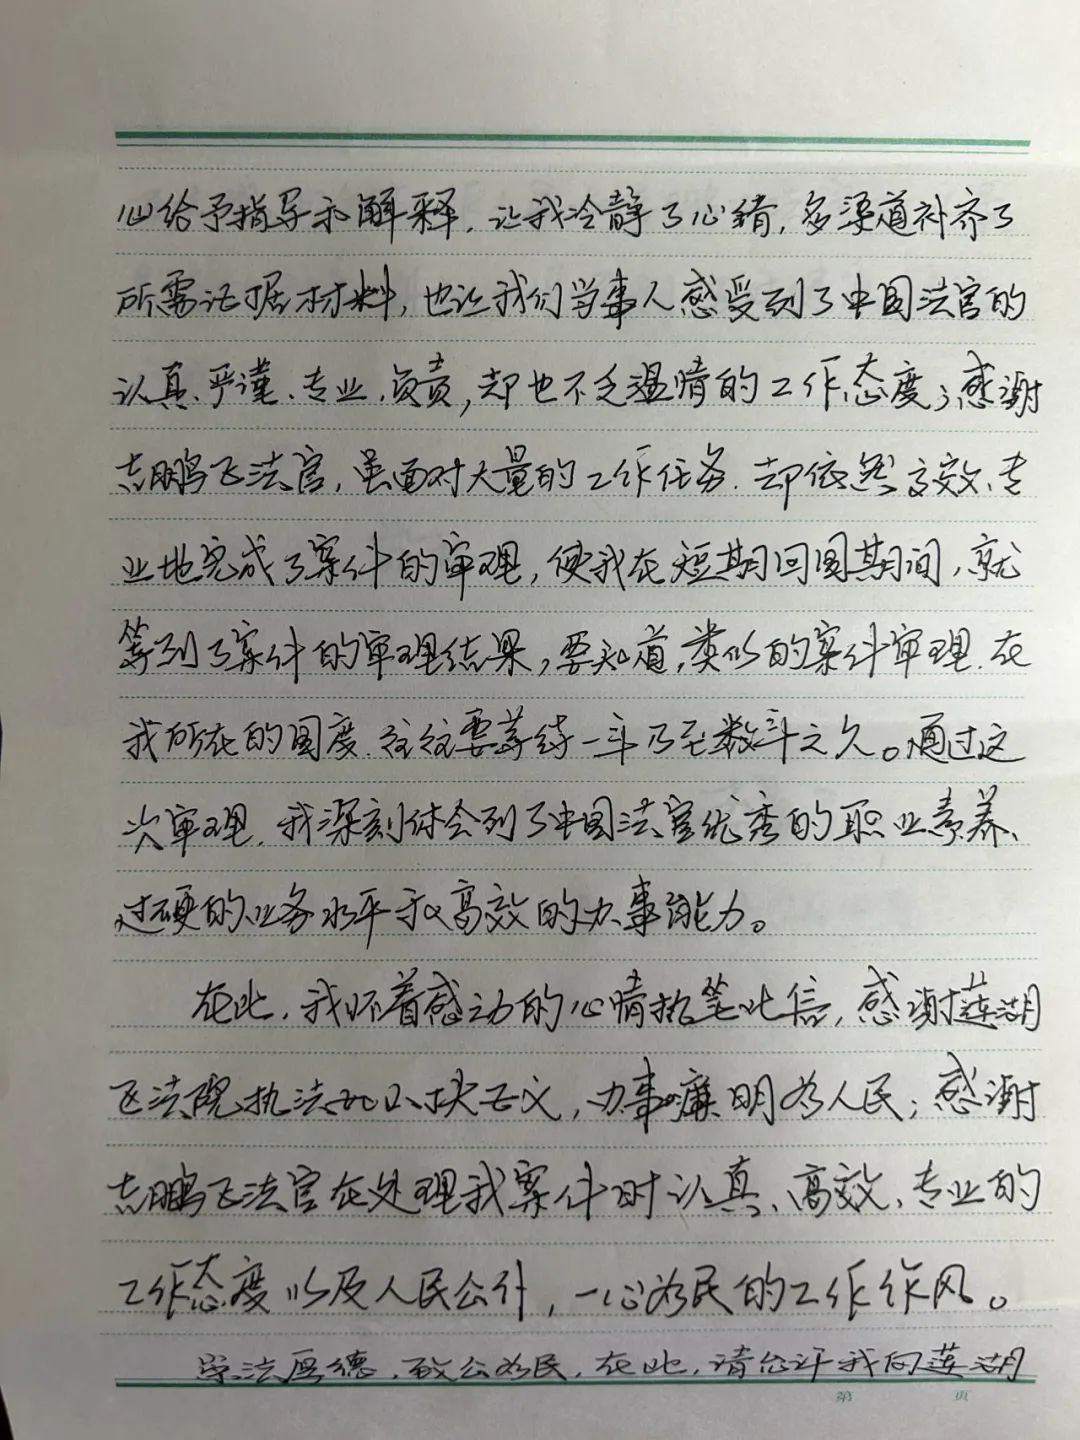 心给予指导和解释，让我冷静了心绪，多渠道补齐了
所需证据材料，也让我们当事人感受到了中国法官的
认真、严谨、专业、负责，却也不乏温情的工作态度；感谢
志鹏飞法官，虽面对大量的工作任务、却依然高效、专
业地完成了案件的审理，使我在短期回国期间，就
等到了案件的审理结果，要知道，类似的案件审理、在
我所在的国度、往往要等待一年乃至数年之久。通过这
次审理，我深刻体会到了中国法官优秀的职业素养、
过硬的业务水平和高效的办事能力。
在此，我怀着感动的心情执笔此信，感谢莲湖
区法院执法公义，办事廉明为人民；感谢
志鹏飞法官在处理我案件时认真、高效、专业的
工作态度以及人民公仆，一心为民的工作作风。
崇法厚德，致公为民，在此，请允许我向莲湖
第 页